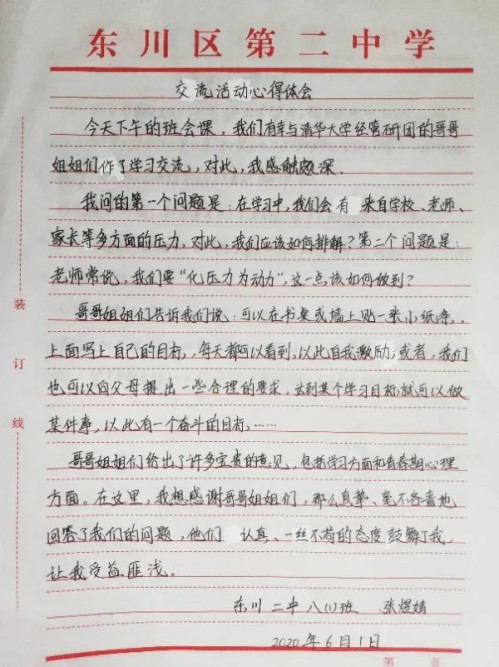 东川区第二中学
交流活动心得体会
今天下午的班会课，我们有幸与清华大学经管研团的哥哥
姐姐们作了学习交流，对此，我感触颇深.
我问的第一个问题是：在学习中，我们会有 来自学校、老师、
家长等多方面的压力，对此，我们应该如何排解？第二个问题是：
老师常说，我们要“化压力为动力”，这一点该如何做到？
哥哥姐姐们告诉我们说：可以在书桌或墙上贴一张小纸条，
上面写上自己的目标，每天都可以看到，以此自我激励；或者，我们
也可以向父母提出一些合理的要求，达到某个学习目标就可以做
某件事，以此有一个奋斗的目标，……
哥哥姐姐们给出了许多宝贵的意见，包括学习方面和青春期心理
方面。在这里，我想感谢哥哥姐姐们，那么真挚、毫不吝啬地
回答了我们的问题，他们 认真、一丝不苟的态度鼓舞了我，
让我受益匪浅。
东川二中八(1)班 张煜婧
2020年6月1日
装
订
线
第 页